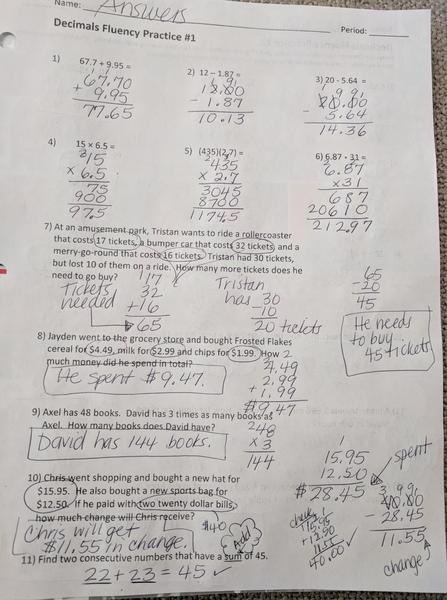 Name: Answers
Decimals Fluency Practice #1
Period:
1) 67.7 + 9.95 =
67.70
+ 9.95
77.65
2) 12 – 1.87 =
12.00
- 1.87
10.13
3) 20 - 5.64 =
20.00
- 5.64
14.36
4) 15 x 6.5 =
15
x 6.5
75
900
97.5
5) (435)(2.7) =
435
x 2.7
3045
8700
1174.5
6) 6.87 • 31 =
6.87
x 31
687
20610
212.97
7) At an amusement park, Tristan wants to ride a rollercoaster
that costs 17 tickets, a bumper car that costs 32 tickets, and a
merry-go-round that costs 16 tickets. Tristan had 30 tickets,
but lost 10 of them on a ride. How many more tickets does he
need to go buy?
Tickets
needed
17
32
+16
65
Tristan
has 30
-10
20 tickets
65
-20
45
He needs
to buy
45 tickets
8) Jayden went to the grocery store and bought Frosted Flakes
cereal for $4.49, milk for $2.99 and chips for $1.99. How
much money did he spend in total?
He spent $9.47.
2
4.49
2.99
+ 1.99
$9.47
9) Axel has 48 books. David has 3 times as many books as
Axel. How many books does David have?
David has 144 books.
2
48
x 3
144
10) Chris went shopping and bought a new hat for
$15.95. He also bought a new sports bag for
$12.50. If he paid with two twenty dollar bills,
how much change will Chris receive?
Chris will get
$11.55 in change.
$40
1
15.95
12.50
$28.45
spent
40.00
- 28.45
11.55
change
check:
15.95
+12.50
11.55
40.00 ✓
Add
11) Find two consecutive numbers that have a sum of 45.
22 + 23 = 45 ✓